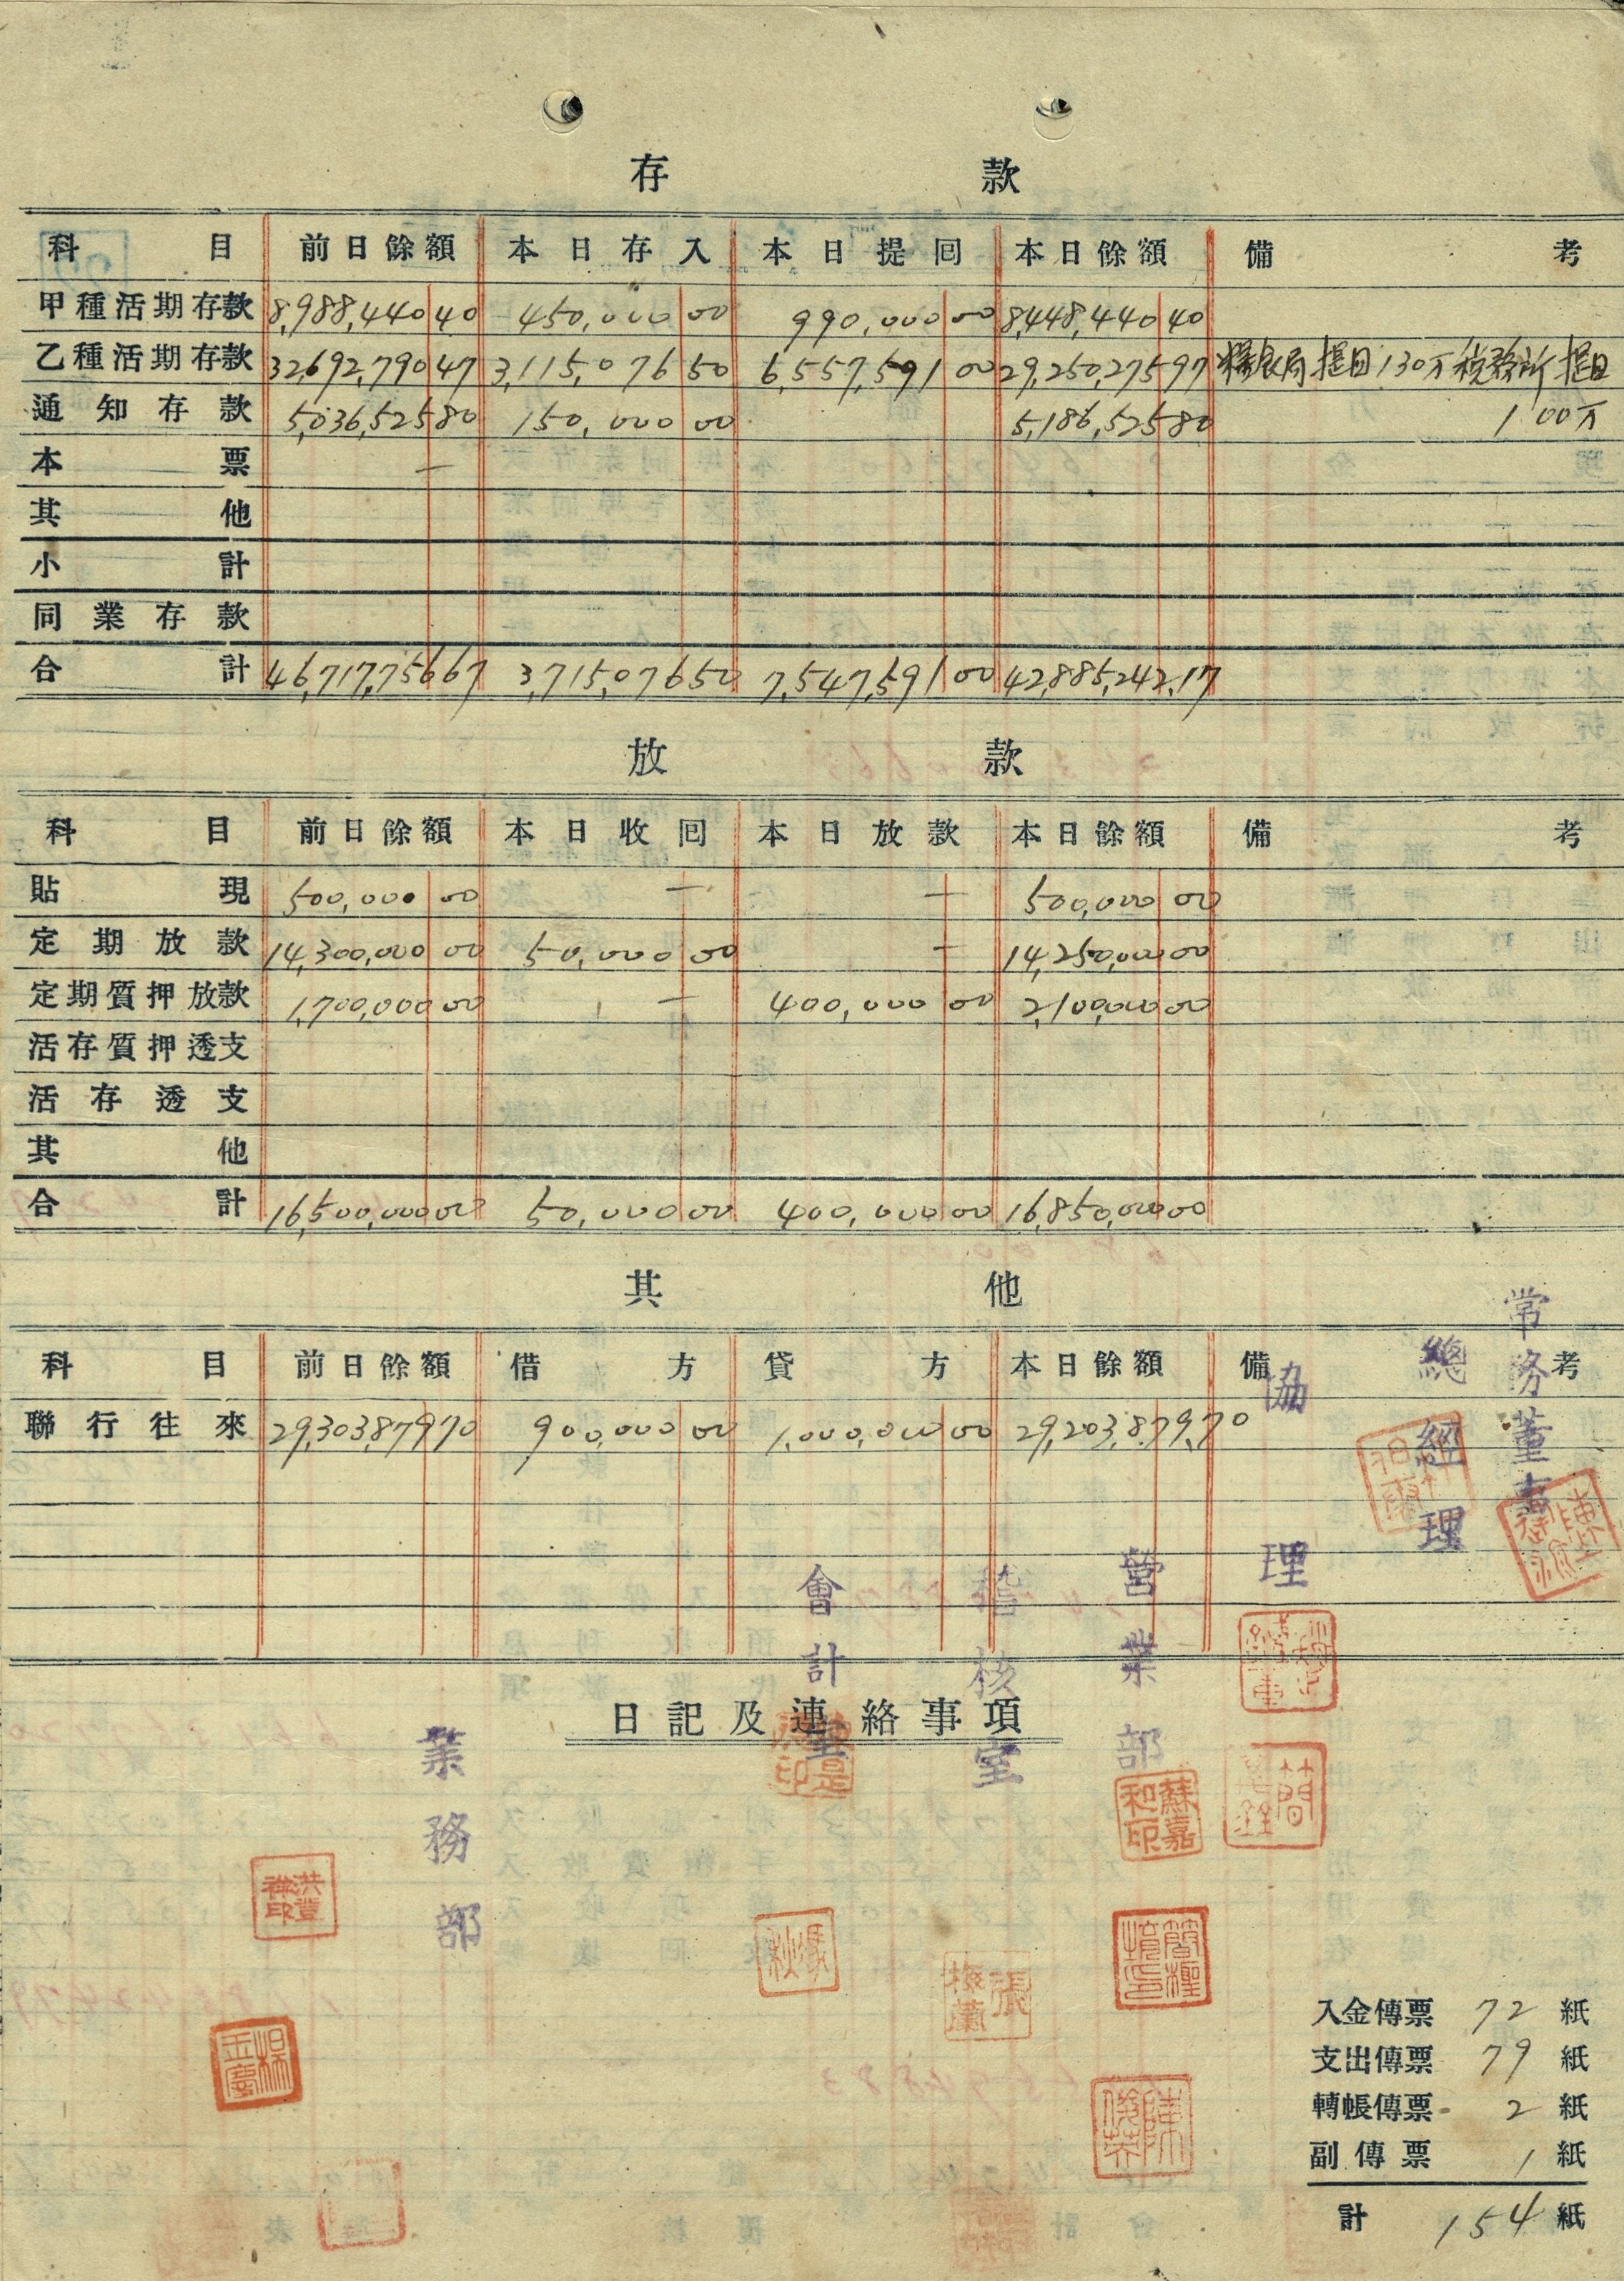 存款
科目 前日餘額 本日存入 本日提囘 本日餘額 備考
甲種活期存款 8,988,440 40 450,000 00 990,000 00 8,448,440 40
乙種活期存款 32,692,790 47 3,115,076 50 6,557,591 00 29,250,275 97 糧食局提回130万税務所提回
通知存款 5,036,525 80 150,000 00 5,186,525 80 100万
本票 —
其他
小計
同業存款
合計 46,717,756 67 3,715,076 50 7,547,591 00 42,885,242.17
放款
科目 前日餘額 本日收囘 本日放款 本日餘額 備考
貼現 500,000 00 — — 500,000 00
定期放款 14,300,000 00 50,000 00 — 14,250,000 00
定期質押放款 1,700,000 00 — 400,000 00 2,100,000 00
活存質押透支
活存透支
其他
合計 16,500,000 00 50,000 00 400,000 00 16,850,000 00
其他
科目 前日餘額 借方 貸方 本日餘額 備考
聯行往來 29,303,879 70 900,000 00 1,000,000 00 29,203,879.70
常務董事
總經理
協理
營業部
稽核室
會計室
業務部
日記及連絡事項
蘇嘉和印
洪登祥印
張梅蘭
入金傳票 72 紙
支出傳票 79 紙
轉帳傳票 2 紙
副傳票 1 紙
計 154 紙